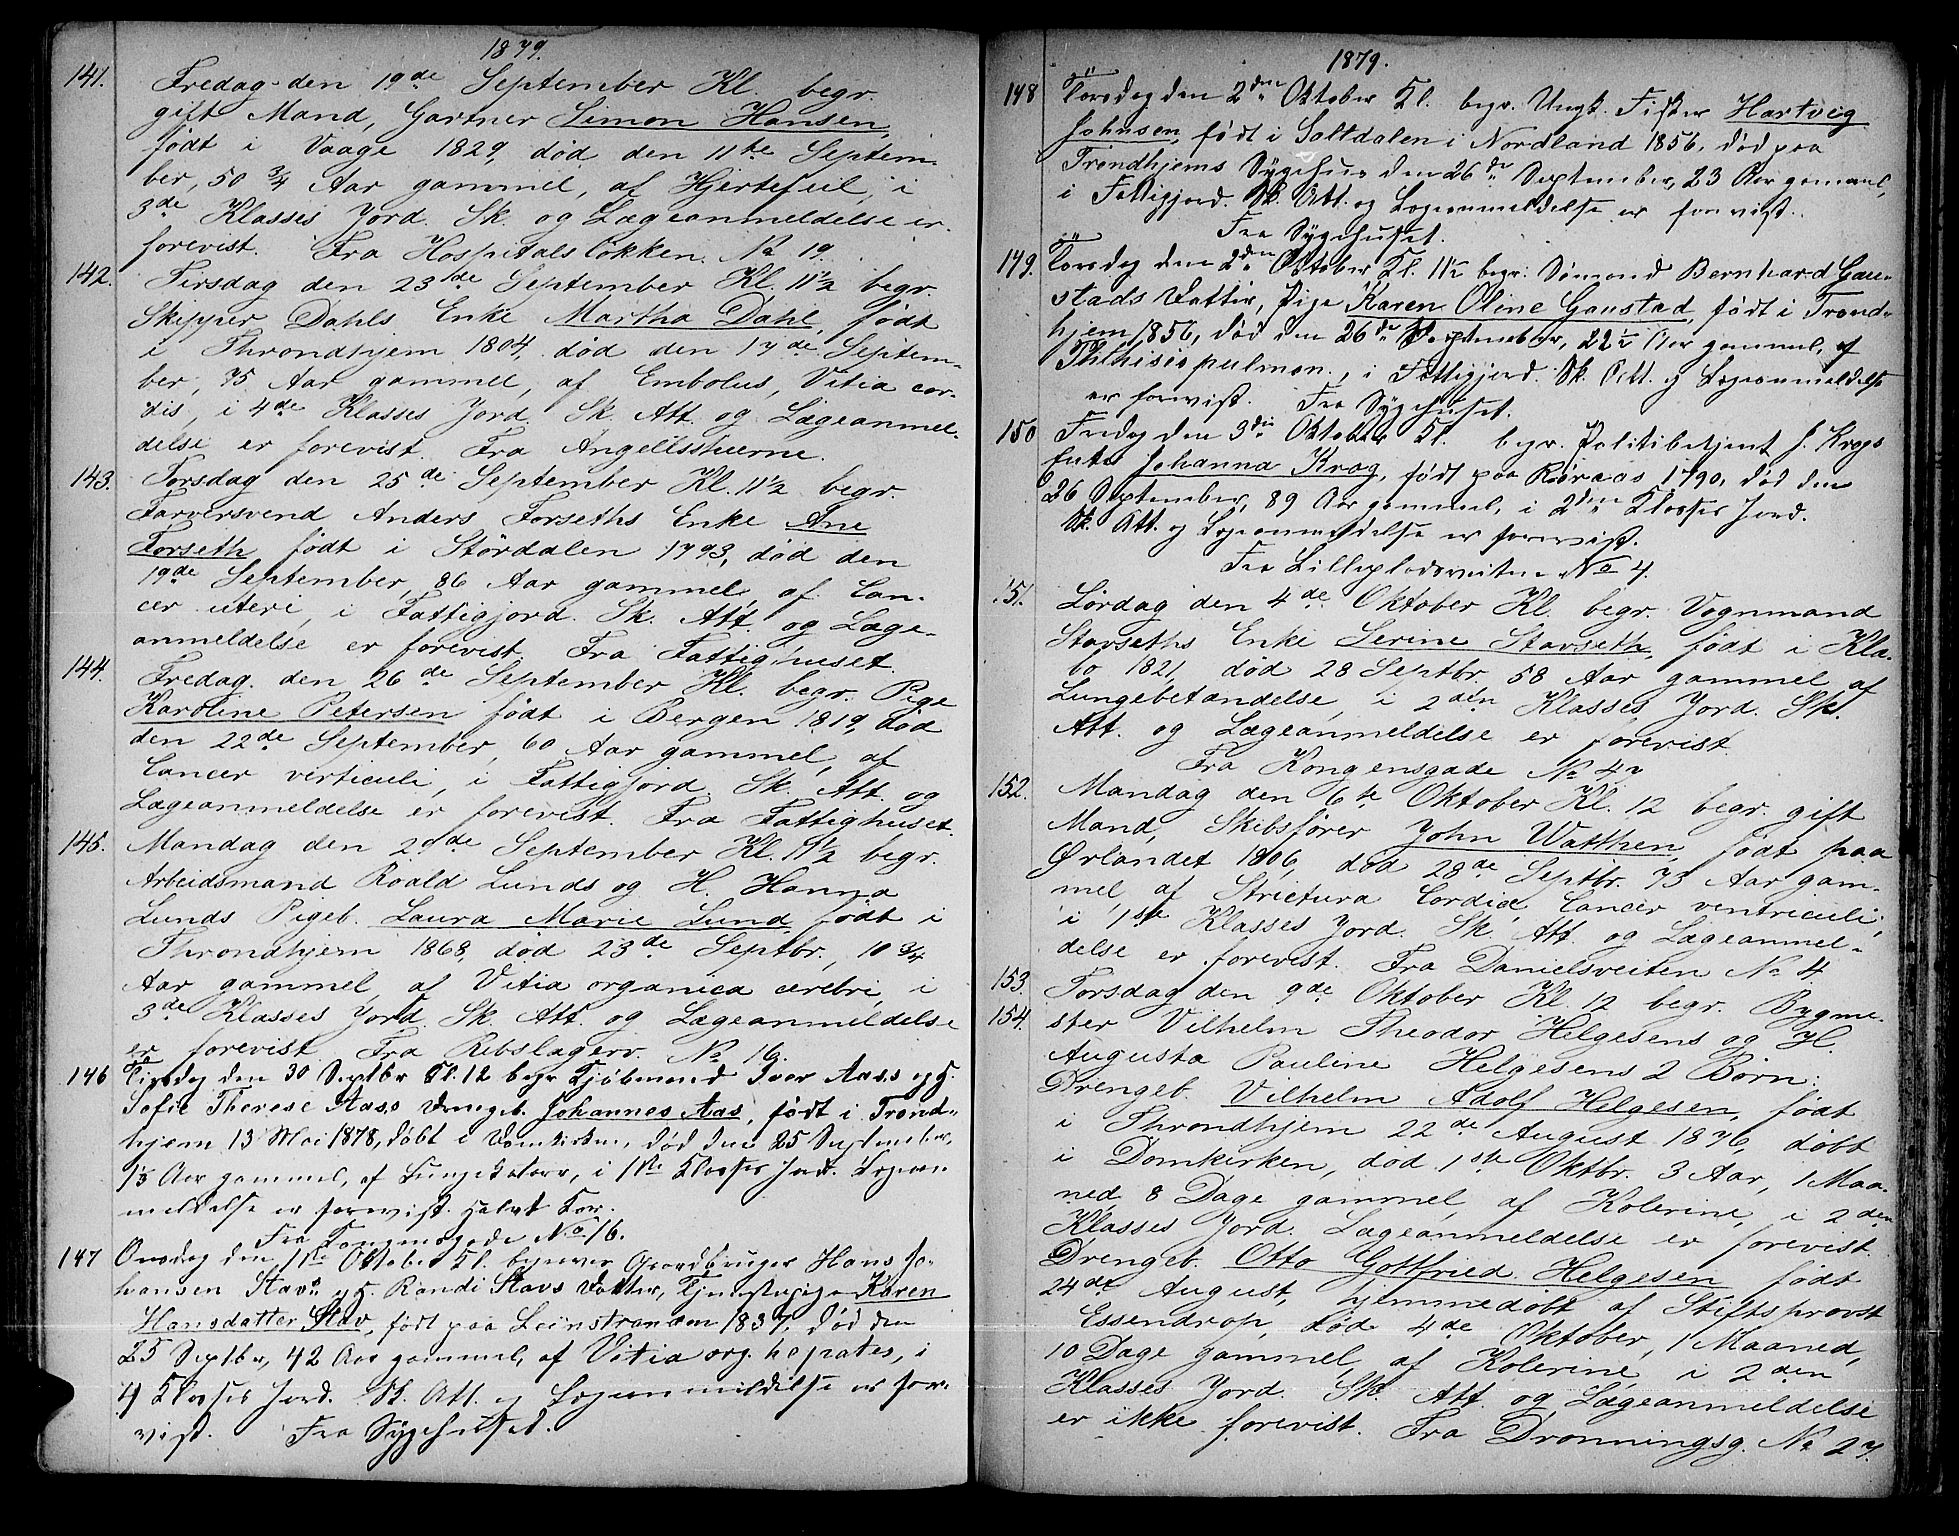 1879.
141. Fredag den 19de September Kl. begr.
gift Mand, Gartner Simon Hansen,
født i Vaage 1829, død den 11te Septem-
ber, 50 3/4 Aar gammel, af Hjertefeil, i
3de Klasses Jord. Sk. og Lægeanmeldelse er
forevist. Fra Hospitalsløkken No 19.
142. Tirsdag den 23de September Kl. 11 1/2 begr.
Skipper Dahls Enke Martha Dahl, født
i Throndhjem 1804, død den 17de Septem-
ber, 75 Aar gammel, af Embolus, Vitia cor-
dis, i 4de Klasses Jord. Sk. Att. og Lægeanmel-
delse er forevist. Fra Angellsstuerne.
143. Torsdag den 25de September Kl. 11 1/2 begr.
Farversvend Anders Forseths Enke Ane
Forseth født i Størdalen 1793, død den
19de September, 86 Aar gammel, af Can-
cer uteri, i Fattigjord. Sk. Att. og Læge-
anmeldelse er forevist. Fra Fattighuset.
144. Fredag den 26de September Kl. begr. Pige
Karoline Petersen født i Bergen 1819, død
den 22de September, 60 Aar gammel, af
Cancer virticuli, i Fattigjord. Sk. Att. og
Lægeanmeldelse er forevist. Fra Fattighuset.
145. Mandag den 29de September Kl. 11 1/2 begr.
Arbeidsmand Roald Lunds og H. Hanna
Lunds Pigeb. Laura Marie Lund, født i
Throndhjem 1868, død 23de Septbr., 10 3/4
Aar gammel, af Vitia organica cerebri, i
3de Klasses Jord. Sk. Att. og Lægeanmeldelse
er forevist. Fra Rebslagerv. No 16.
146 Tirsdag den 30 Septbr Kl. 12 begr. Kjøbmand Iver Aass og H.
Sofie Therese Aass Drengeb. Johannes Aas, født i Trond-
hjem 13 Mai 1878, døbt i Domkirken, død den 25 September,
1 1/3 Aar gammel, af Lungekatarr, i 1ste Klasses Jord. Lægean-
meldelse er forevist.
Fra No 16.
147 Onsdag den 1ste Oktober Kl. begraves Gaardbruger Hans Jo-
hansen Stavs og H. Randi Stavs Datter, Tjenestepige Karen
Hansdatter Stav, født paa Leinstranden 1837, død den
25 Septbr, 42 Aar gammel, af Vitia org. hepates, i
4 Klasses Jord. Sk. Att. og Lægeanmeldelse er fore-
vist. Fra Sygehuset.
1879.
148 Torsdag den 2den Oktober Kl. begr. Ungk. Fisker Hartvig
Johnsen, født i Saltdalen i Nordland 1856, død paa
Trondhjems Sygehus den 26de September, 23 Aar gammel,
i Fattigjord. Sk. Att. og Lægeanmeldelse er forevist.
Fra Sygehuset.
149. Torsdag den 2den Oktober Kl. 11 1/2 begr. Sømand Bernhard Gau-
stads Datter, Pige Karen Oline Gaustad, født i Trond-
hjem 1856, død den 26de September, 22 1/2 Aar gammel, af
Phthisis pulmon., i Fattigjord. Sk. Att. og Lægeanmeldelse
er forevist. Fra Sygehuset.
150 Fredag den 3die Oktober Kl. begr. Politibetjent J. Krogs
Enke Johanna Krog, født paa Røraas 1790, død den
26 September, 89 Aar gammel, i 2den Klasses Jord.
Sk. Att. og Lægeanmeldelse er forevist.
Fra Lillepladsveiten No 4.
151. Lørdag den 4de Oktober Kl. begr. Vognmand
Stavseths Enke Serine Stavseth, født i Klæ-
bo 1821, død 28 Septbr 58 Aar gammel af
Lungebetændelse, i 2den Klasses Jord. Sk.
Att. og Lægeanmeldelse er forevist
Fra Kongensgade No 47
152. Mandag den 6te Oktober Kl. 12 begr. gift
Mand, Skibsfører John Watthen, født paa
Ørlandet 1806, død 28de Septbr. 73 Aar gam-
mel, af Strictura Cordiæ Cancer ventriculi,
i 1ste Klasses Jord. Sk. Att. og Lægeanmel-
delse er forevist. Fra Danielsveiten No 4
153. Torsdag den 9de Oktober Kl. 12 begr. Bygme-
154. ster Vilhelm Theodor Helgesens og H.
Augusta Pauline Helgesens 2 Børn:
Drengeb. Vilhelm Adolf Helgesen, født
i Throndhjem 22de August 1876, døbt
i Domkirken, død 1ste Oktbr. 3 Aar, 1 Maa-
ned 8 Dage gammel, af Kolerine, i 2den
Klasses Jord. Lægeanmeldelse er forevist.
Drengeb. Otto Gottfried Helgesen født
24de August, hjemmedøbt af Stiftsprovst
Essendrop, død 4de Oktober, 1 Maaned,
10 Dage gammel, af Kolerine, i 2den
Klasses Jord. Sk. Att. og Lægeanmeldelse
er ikke forevist. Fra Dronningsg. No 27.